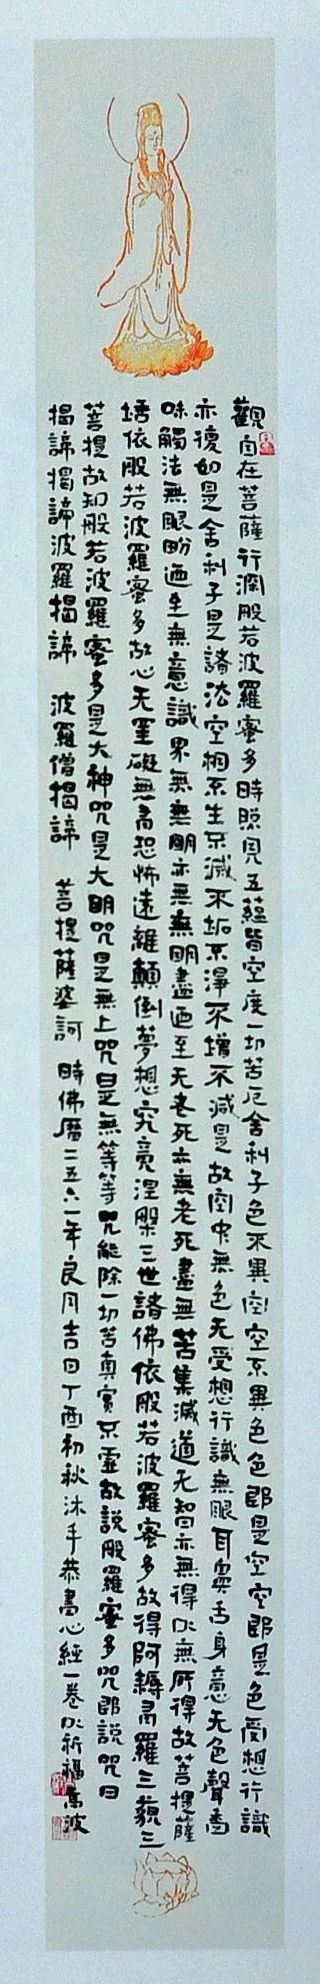 觀自在菩薩行深般若波羅蜜多時照見五蘊皆空度一切苦厄舍利子色不異空空不異色色即是空空即是色受想行識
亦復如是舍利子是諸法空相不生不滅不垢不淨不增不減是故空中無色无受想行識無眼耳鼻舌身意无色聲香
味觸法無眼界迺至無意識界無無明亦無無明盡迺至无老死亦無老死盡無苦集滅道无智亦無得以無所得故菩提薩
埵依般若波羅蜜多故心无罣礙無有恐怖遠離顛倒夢想究竟涅槃三世諸佛依般若波羅蜜多故得阿耨多羅三藐三
菩提故知般若波羅蜜多是大神咒是大明咒是無上咒是無等等咒能除一切苦真實不虛故說般羅蜜多咒即說咒曰
揭諦揭諦波羅揭諦 波羅僧揭諦 菩提薩婆訶 時佛曆二五六一年良月吉日丁酉初秋沐手恭書心經一卷以祈福 波